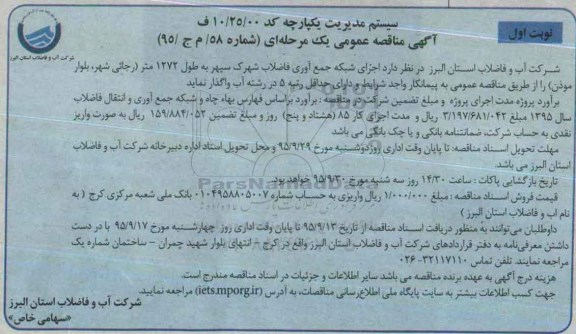 سیستم مدیریت یکپارچه کد ۱۰/۲۵/۰۰ ف
آگهی مناقصه عمومی یک مرحله‌ای (شماره ۵۸/ م ج /۹۵)
نوبت اول
شرکت آب و فاضلاب استان البرز
شرکت آب و فاضلاب استان البرز در نظر دارد اجزای شبکه جمع آوری فاضلاب شهرک سپهر به طول ۱۲۷۲ متر (رجائی شهر، بلوار
موذن) را از طریق مناقصه عمومی به پیمانکار واجد شرایط و دارای حداقل رتبه ۵ در رشته آب واگذار نماید
برآورد پروژه مدت اجرای پروژه و مبلغ تضمین شرکت در مناقصه : برآورد براساس فهارس بهاء چاه و شبکه جمع آوری و انتقال فاضلاب
سال ۱۳۹۵ مبلغ ۳/۱۹۷/۶۸۱/۰۴۲ ریال و مدت اجزای کار ۸۵ (هشتاد و پنج) روز و مبلغ تضمین ۱۵۹/۸۸۴/۰۵۲ ریال به صورت واریز
نقدی به حساب شرکت، ضمانتنامه بانکی و یا چک بانکی می باشد
مهلت تحویل اسناد مناقصه: تا پایان وقت اداری روز دوشنبه مورخ ۹۵/۹/۲۹ و محل تحویل اسناد اداره دبیرخانه شرکت آب و فاضلاب
استان البرز می باشد.
تاریخ بازگشایی پاکات : ساعت ۱۴/۳۰ روز سه شنبه مورخ ۹۵/۹/۳۰ خواهد بود.
قیمت فروش اسناد مناقصه : مبلغ ۱/۰۰۰/۰۰۰ ریال واریزی به حساب شماره ۰۱۰۴۹۵۸۸۰۵۰۰۷ بانک ملی شعبه مرکزی کرج ( به
نام اب و فاضلاب استان البرز )
داوطلبان می‌توانند به منظور دریافت اسناد مناقصه از تاریخ ۹۵/۹/۱۳ تا پایان وقت اداری روز چهارشنبه مورخ ۹۵/۹/۱۷ با در دست
داشتن معرفی‌نامه به دفتر قراردادهای شرکت آب و فاضلاب استان البرز واقع در کرج – انتهای بلوار شهید چمران – ساختمان شماره یک
مراجعه نمایند. تلفن تماس ۳۲۱۱۷۱۱۰-۰۲۶
هزینه درج آگهی به عهده برنده مناقصه می باشد سایر اطلاعات و جزئیات در اسناد مناقصه مندرج است.
جهت کسب اطلاعات بیشتر به سایت پایگاه ملی اطلاع‌رسانی مناقصات، به آدرس (iets.mporg.ir) مراجعه نمایید.
شرکت آب و فاضلاب استان البرز
«سهامی خاص»